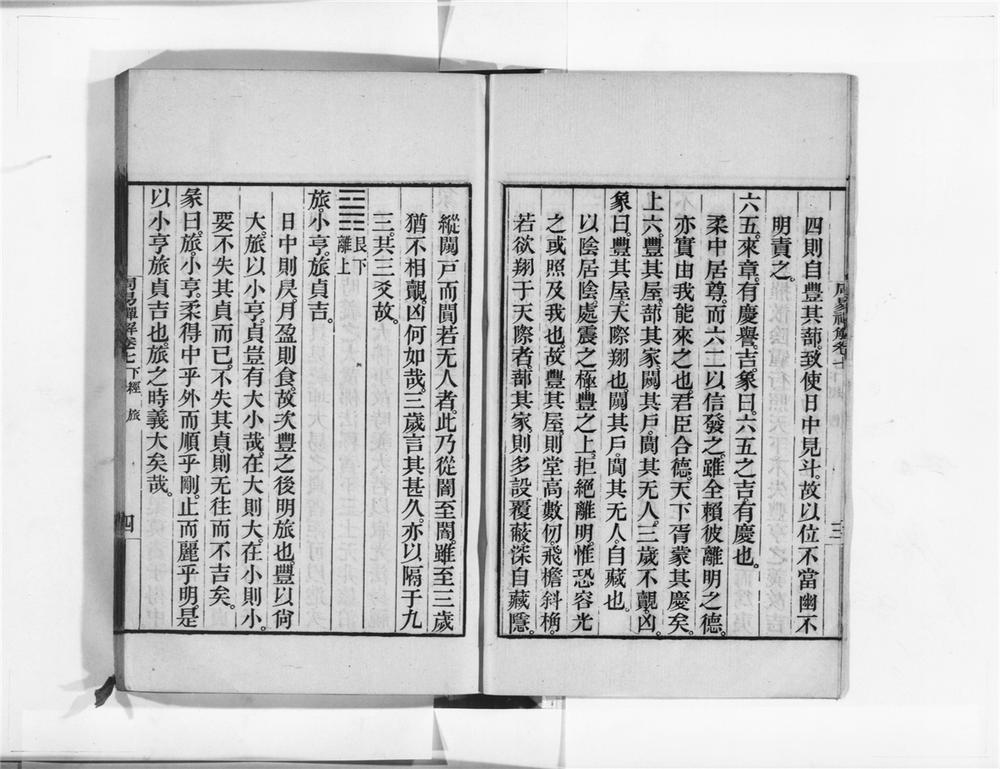 四則自豐其蔀。致使日中見斗。故以位不當幽不
明責之。
六五。來章。有慶譽。吉。象曰。六五之吉。有慶也。
柔中居尊。而六二以信發之。雖全賴彼離明之德。
亦實由我能來之也。君臣合德。天下胥蒙其慶矣。
上六。豐其屋。蔀其家。闚其戶。闃其无人。三歲不覿。凶。
象曰。豐其屋。天際翔也。闚其戶。闃其无人。自藏也。
以陰居陰。處震之極。豐之上。拒絕離明。惟恐容光
之或照及我也。故豐其屋。則堂高數仞。飛檐斜桷。
若欲翔于天際者。蔀其家。則多設覆蔽。深自藏隱。
三
縱闚戶而闃若无人者。此乃從闇至闇。雖至三歲
猶不相覿。凶何如哉。三歲言其甚久。亦以隔于九
三。共三爻故。
艮下
離上
旅小亨。旅貞吉。
日中則昃。月盈則食。故次豐之後明旅也。豐以尙
大。旅以小亨。貞豈有大小哉。在大則大。在小則小。
要不失其貞而已。不失其貞。則无往而不吉矣。
彖曰。旅。小亨。柔得中乎外而順乎剛。止而麗乎明。是
以小亨旅貞吉也。旅之時義大矣哉。
周易禪解卷七 下經 旅
四